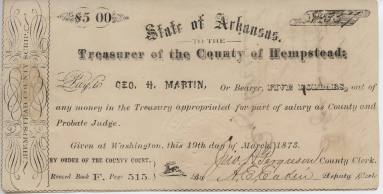 $5 00
State of Arkansas.
TO THE
Treasurer of the County of Hempstead:
Pay to GEO. H. MARTIN, Or Bearer, FIVE DOLLARS, out of
any money in the Treasury appropriated for part of salary as County and
Probate Judge.
Given at Washington, this 19th day of March, 1873.
BY ORDER OF THE COUNTY COURT. County Clerk.
Record Book F, Page 515. By Deputy Clerk
HEMPSTEAD COUNTY SCRIP.